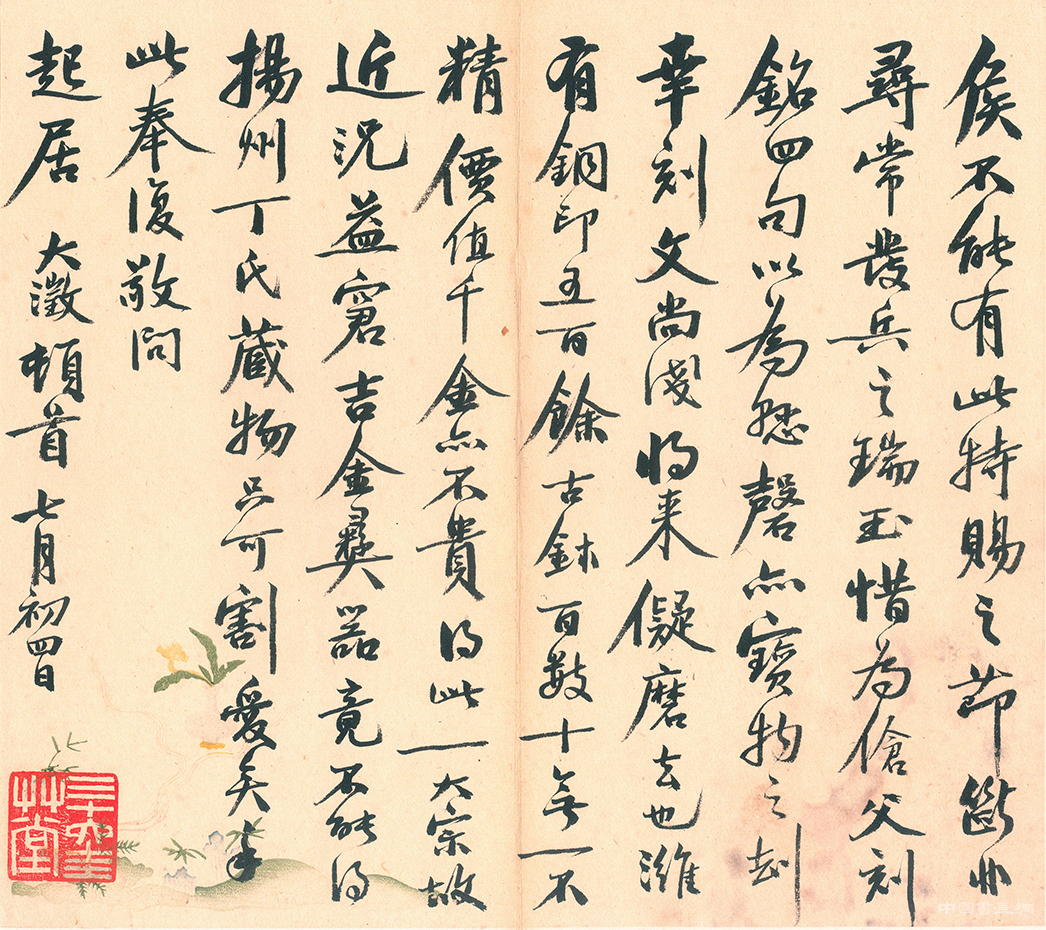 侯不能有此特賜之節斷非
尋常發兵之瑞玉惜為傖父刻
銘四句以為懸磬亦寶物之刦
幸刻文尚淺將来儗磨去也濰
有銅印五百餘古鉥百數十無一不
精價值千金亦不貴得此一大宗故
近況益窘吉金彝器竟不能得
揚州丁氏藏物只可割愛矣手
此奉復敬問
起居 大澂頓首 七月初四日
三十六圭艸堂